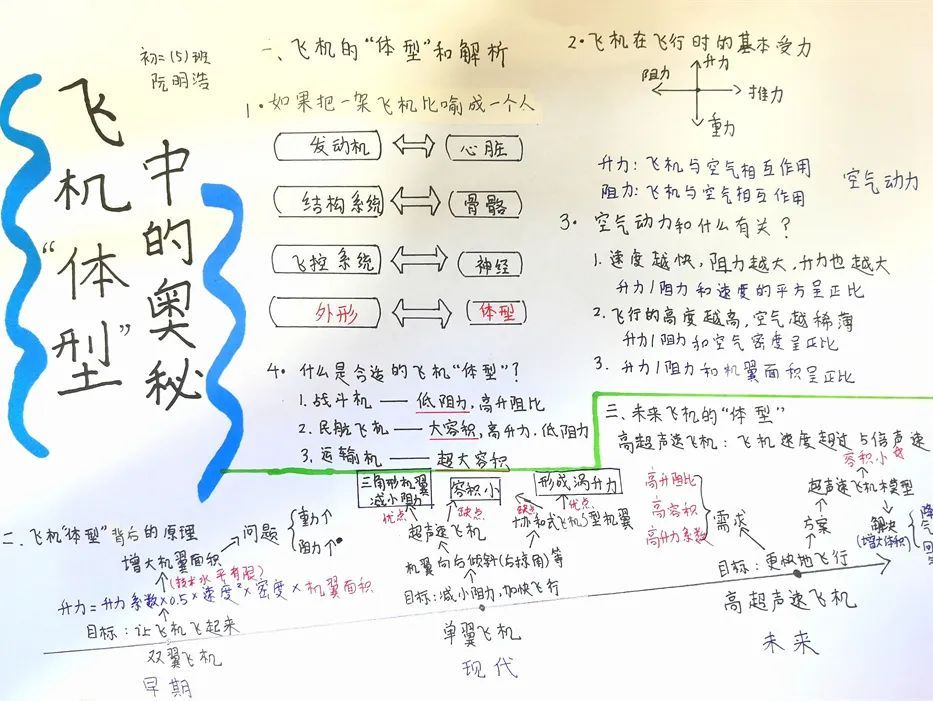 初二(5)班
阮明浩
飞机"体型"
中的奥秘
一、飞机的"体型"和解析
1.如果把一架飞机比喻成一个人
发动机 心脏
结构系统 骨骼
飞控系统 神经
外形 体型
2.飞机在飞行时的基本受力
升力
阻力 推力
重力
升力:飞机与空气相互作用
阻力:飞机与空气相互作用
空气动力
3. 空气动力和什么有关?
1.速度越快,阻力越大,升力也越大
升力/阻力和速度的平方呈正比
2.飞行的高度越高,空气越稀薄
升力/阻力和空气密度呈正比
3.升力/阻力和机翼面积呈正比
4.什么是合适的飞机"体型"?
1.战斗机——低阻力,高升阻比
2.民航飞机——大容积,高升力,低阻力
3.运输机——超大容积
二、飞机"体型"背后的原理
问题
重力↑
阻力↑
增大机翼面积
(技术水平有限)
升力=升力系数×0.5×速度²×密度×机翼面积
目标:让飞机飞起来
双翼飞机
早期
三角形机翼
减小阻力
容积小
形成涡升力
优点
缺点
缺点
优点
超声速飞机
型机翼
机翼向后倾斜(后掠角)等
目标:减小阻力,加快飞行
单翼飞机
现代
三、未来飞机的"体型"
高超声速飞机:飞机速度超过5倍声速
高升阻比
高容积
高升力系数
需求
容积小
超声速飞机模型
方案
解决
(增大体积)
目标:更快地飞行
高超声速飞机
未来